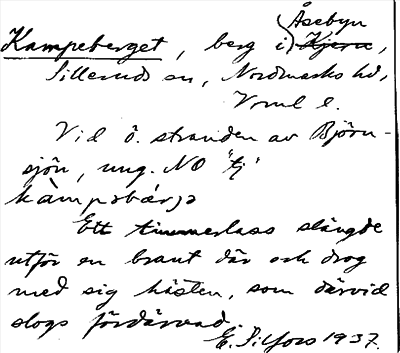 Åsebyn
Kampeberget, berg i Kjern,
Silleruds sn, Nordmarks hd,
Vrml l.
Vid ö. stranden av Björn-
sjön, ung. NO "tj"
Ett timmerlass slängde
utför en brant där och drog
med sig hästen, som därvid
slogs fördärvad.
E. Silfors 1937.